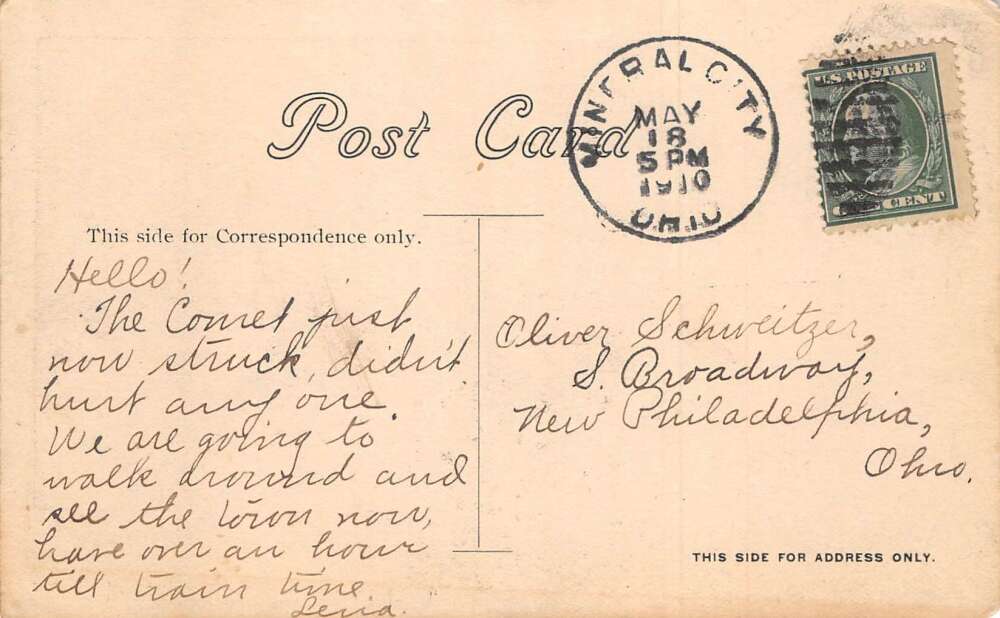 Post Card
MINERAL CITY
MAY
18
5 PM
1910
OHIO
U.S. POSTAGE
ONE CENT
This side for Correspondence only.
Hello!
The Comet just
now struck, didn't
hurt any one.
We are going to
walk around and
see the town now,
have over an hour
till train time.
Lena.
Oliver Schweitzer,
S. Broadway,
New Philadelphia,
Ohio.
THIS SIDE FOR ADDRESS ONLY.